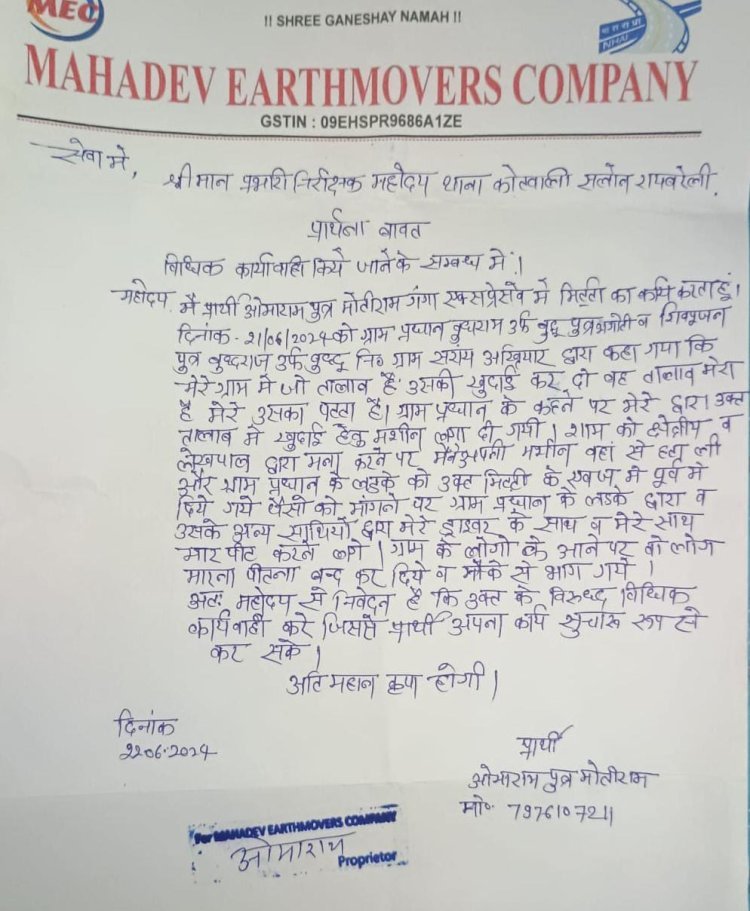 MEC
!! SHREE GANESHAY NAMAH !!
NHAI
MAHADEV EARTHMOVERS COMPANY
GSTIN : 09EHSPR9686A1ZE
सेवा में,
श्रीमान प्रभारी निरीक्षक महोदय थाना कोतवाली सलोन रायबरेली,
प्रार्थना बावत
बिधिक कार्यवाही किये जाने के सम्बन्ध में।
महोदय, मै प्रार्थी ओमाराम पुत्र मोतीराम गंगा एक्सप्रेसवे में मिट्टी का कार्य करता हूं।
दिनांक - 21/06/2024 को ग्राम प्रधान बुधराम उर्फ बुद्दू पुत्र व शिवपूजन
पुत्र उर्फ नि० ग्राम सराय अखियार द्वारा कहा गया कि
मेरे ग्राम में जो तालाब है उसकी खुदाई कर दो वह तालाब मेरा
है मेरे उसका पट्टा है। ग्राम प्रधान के कहने पर मेरे द्वारा उक्त
तालाब में खुदाई हेतु मशीन लगा दी गयी। शाम को क्षेत्रीय व
लेखपाल द्वारा मना करने पर मैंने अपनी मशीन वहां से हटा ली
और ग्राम प्रधान के लड़के को उक्त मिट्टी के एवज में पूर्व में
दिये गये पैसो को मांगने पर ग्राम प्रधान के लडके द्वारा व
उसके अन्य साथियों द्वारा मेरे ड्राइवर के साथ व मेरे साथ
मार पीट करने लगे। ग्राम के लोगो के आने पर वो लोग
मारना पीटना बन्द कर दिये व मौके से भाग गये।
अतः महोदय से निवेदन है कि उक्त के विरुध्द बिधिक
कार्यवाही करे जिससे प्रार्थी अपना कार्य सुचारू रूप से
कर सके।
अति महान कृपा होगी।
दिनांक
22.06.2024
प्रार्थी
ओमाराम पुत्र मोतीराम
मो० 7976107211
For MAHADEV EARTHMOVERS COMPANY
ओमाराम
Proprietor